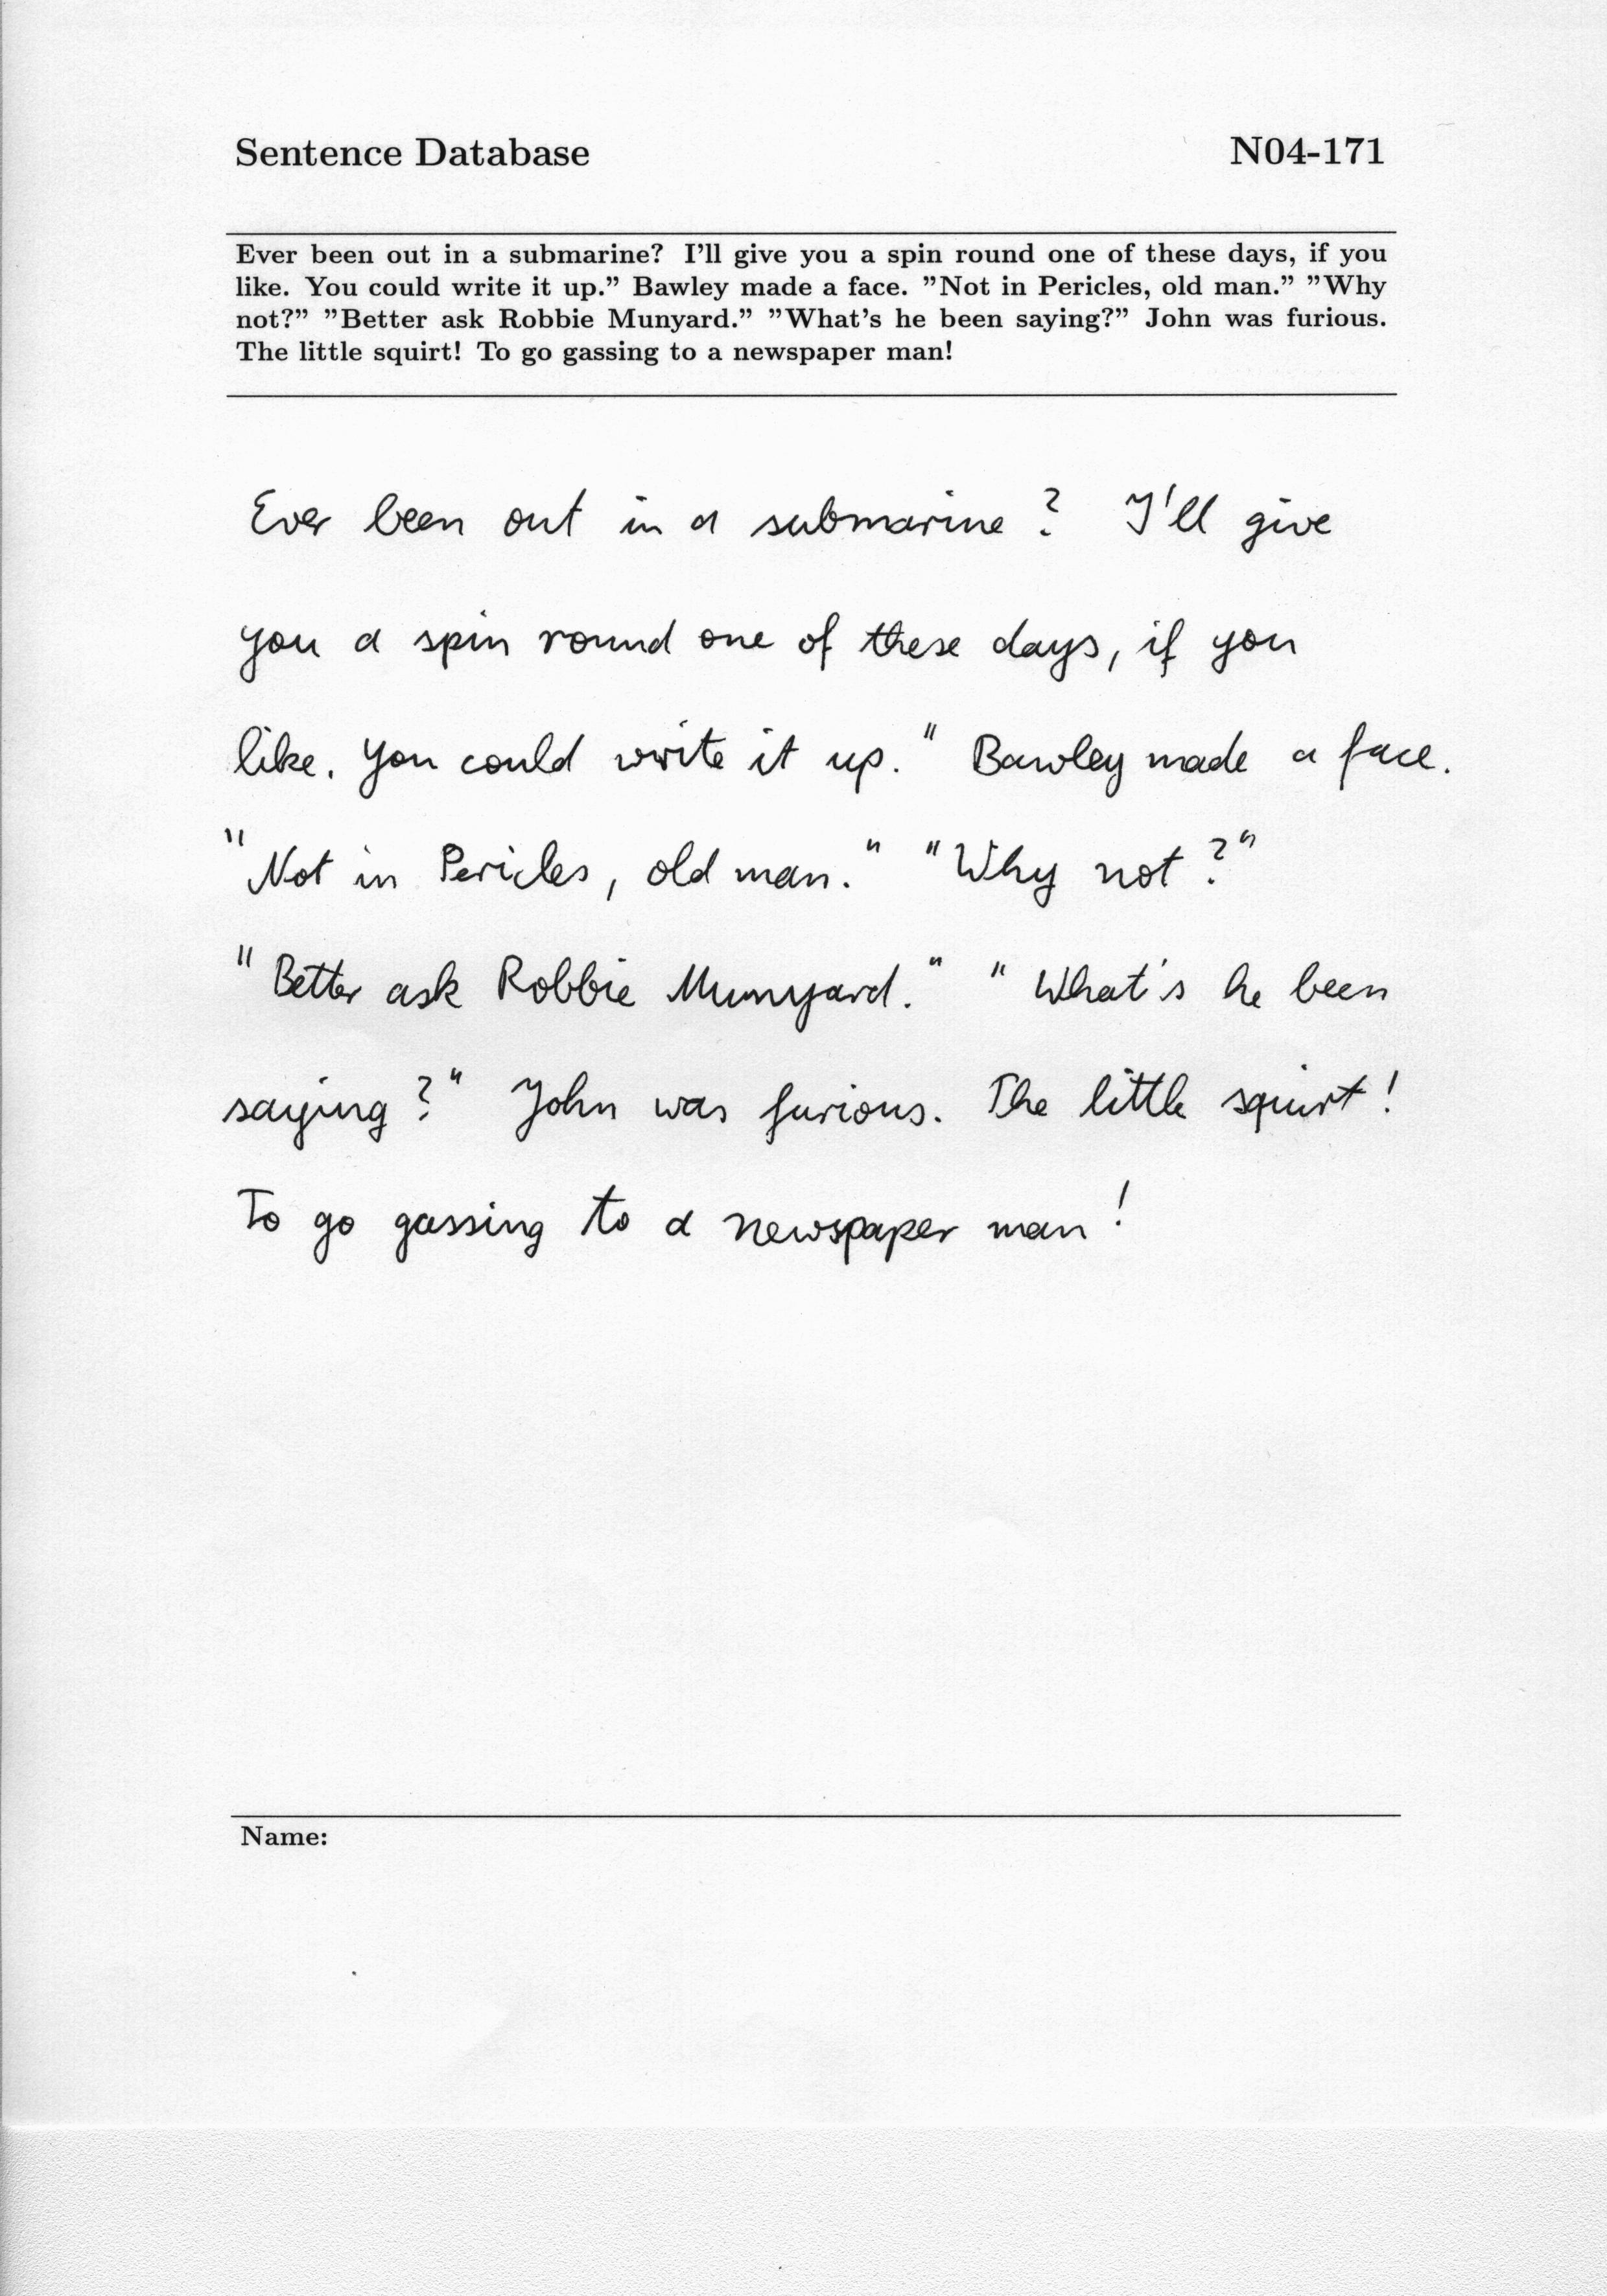 Sentence Database N04-171
Ever been out in a submarine? I'll give you a spin round one of these days, if you
like. You could write it up.” Bawley made a face. ”Not in Pericles, old man.” ”Why
not?” ”Better ask Robbie Munyard.” ”What's he been saying?” John was furious.
The little squirt! To go gassing to a newspaper man!
Ever been out in a submarine? I'll give
you a spin round one of these days, if you
like. You could write it up." Bawley made a face.
"Not in Pericles, old man." "Why not?"
"Better ask Robbie Munyard." "What's he been
saying?" John was furious. The little squirt!
To go gassing to a newspaper man!
Name: